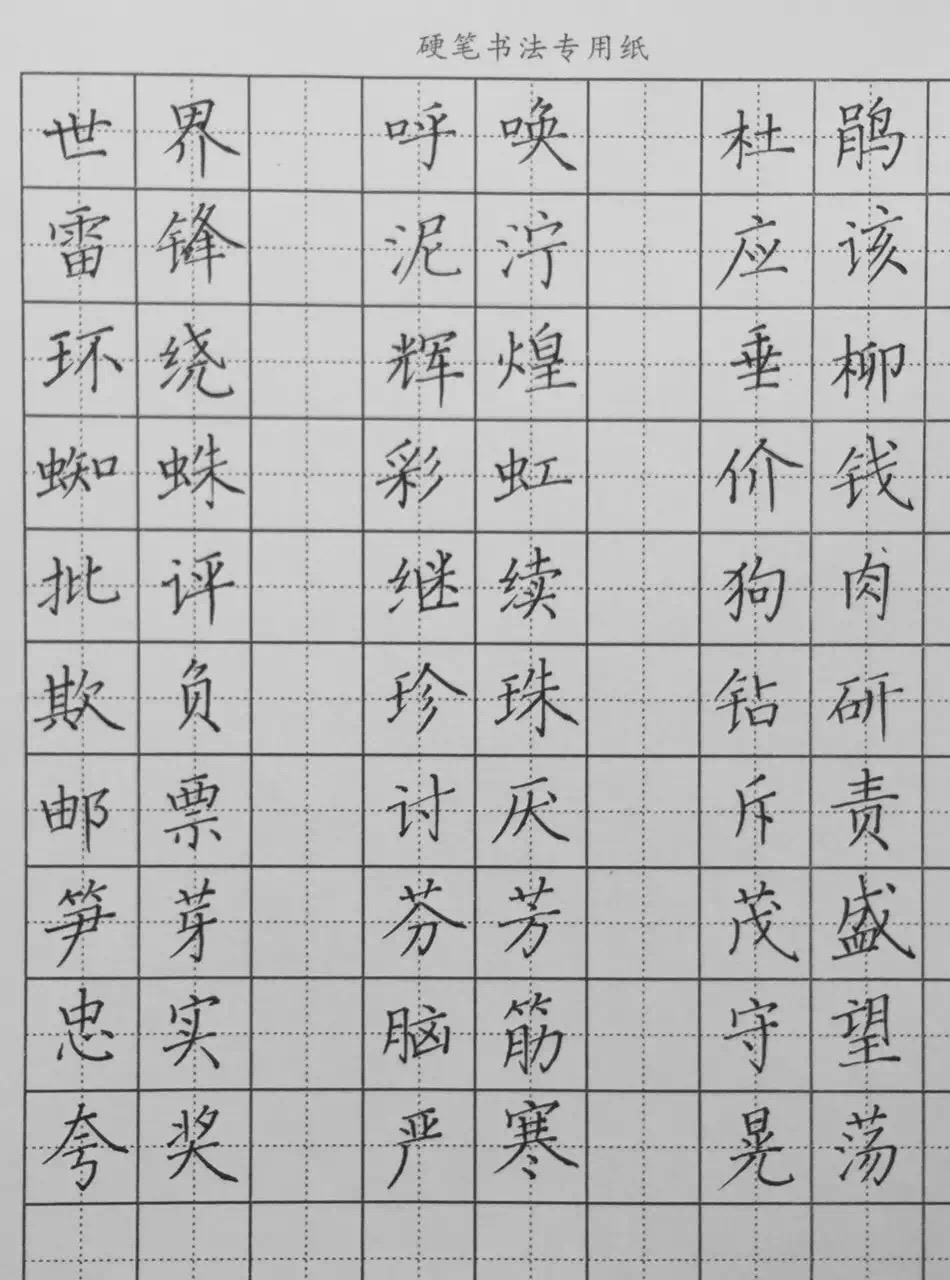 硬笔书法专用纸
世界 呼唤 杜鹃
雷锋 泥泞 应该
环绕 辉煌 垂柳
蜘蛛 彩虹 价钱
批评 继续 狗肉
欺负 珍珠 钻研
邮票 讨厌 斥责
笋芽 芬芳 茂盛
忠实 脑筋 守望
夸奖 严寒 晃荡